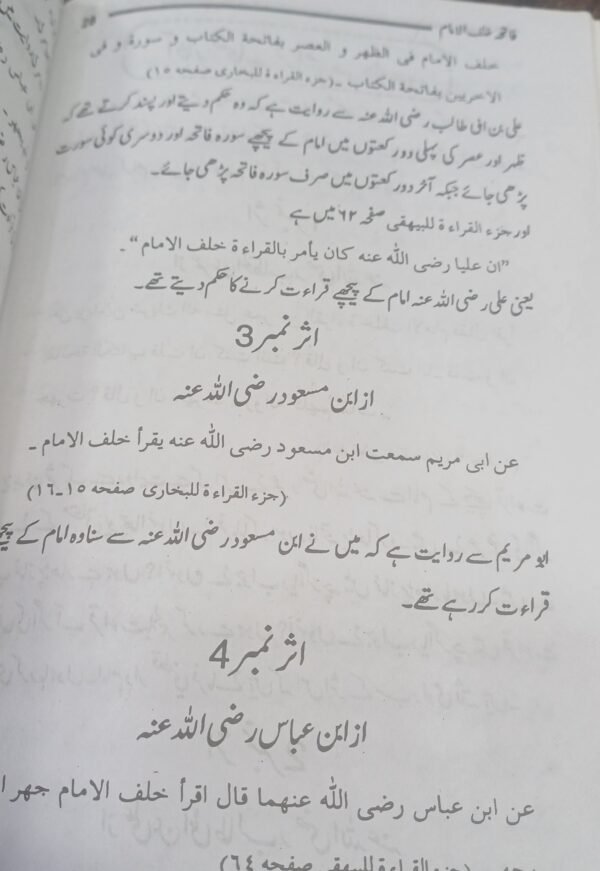 فاتحہ خلف الامام
28
خلف الامام فی الظهر و العصر بفاتحة الكتاب و سورة و فی
الاخریین بفاتحة الکتاب ۔(جزء القراءة للبخاری صفحہ ۱۵)
علی بن ابی طالب رضی اللہ عنہ سے روایت ہے کہ وہ حکم دیتے اور پسند کرتے تھے کہ
ظہر اور عصر کی پہلی دو رکعتوں میں امام کے پیچھے سورہ فاتحہ اور دوسری کوئی سورت
پڑھی جائے جبکہ آخر دو رکعتوں میں صرف سورہ فاتحہ پڑھی جائے۔
اور جزء القراءة للبیهقی صفحہ ۶۲ میں ہے
”ان علیا رضی اللہ عنہ کان یأمر بالقراءة خلف الامام“۔
یعنی علی رضی اللہ عنہ امام کے پیچھے قراءت کرنے کا حکم دیتے تھے۔
اثر نمبر 3
از ابن مسعود رضی اللہ عنہ
عن ابی مریم سمعت ابن مسعود رضی اللہ عنہ یقرأ خلف الامام ۔
(جزء القراءة للبخاری صفحہ ۱۵۔۱۶)
ابو مریم سے روایت ہے کہ میں نے ابن مسعود رضی اللہ عنہ سے سنا وہ امام کے
قراءت کر رہے تھے۔
اثر نمبر 4
از ابن عباس رضی اللہ عنہ
عن ابن عباس رضی اللہ عنهما قال اقرأ خلف الامام جهر
(جزء القراءة للبیهقی صفحہ ۶۴)